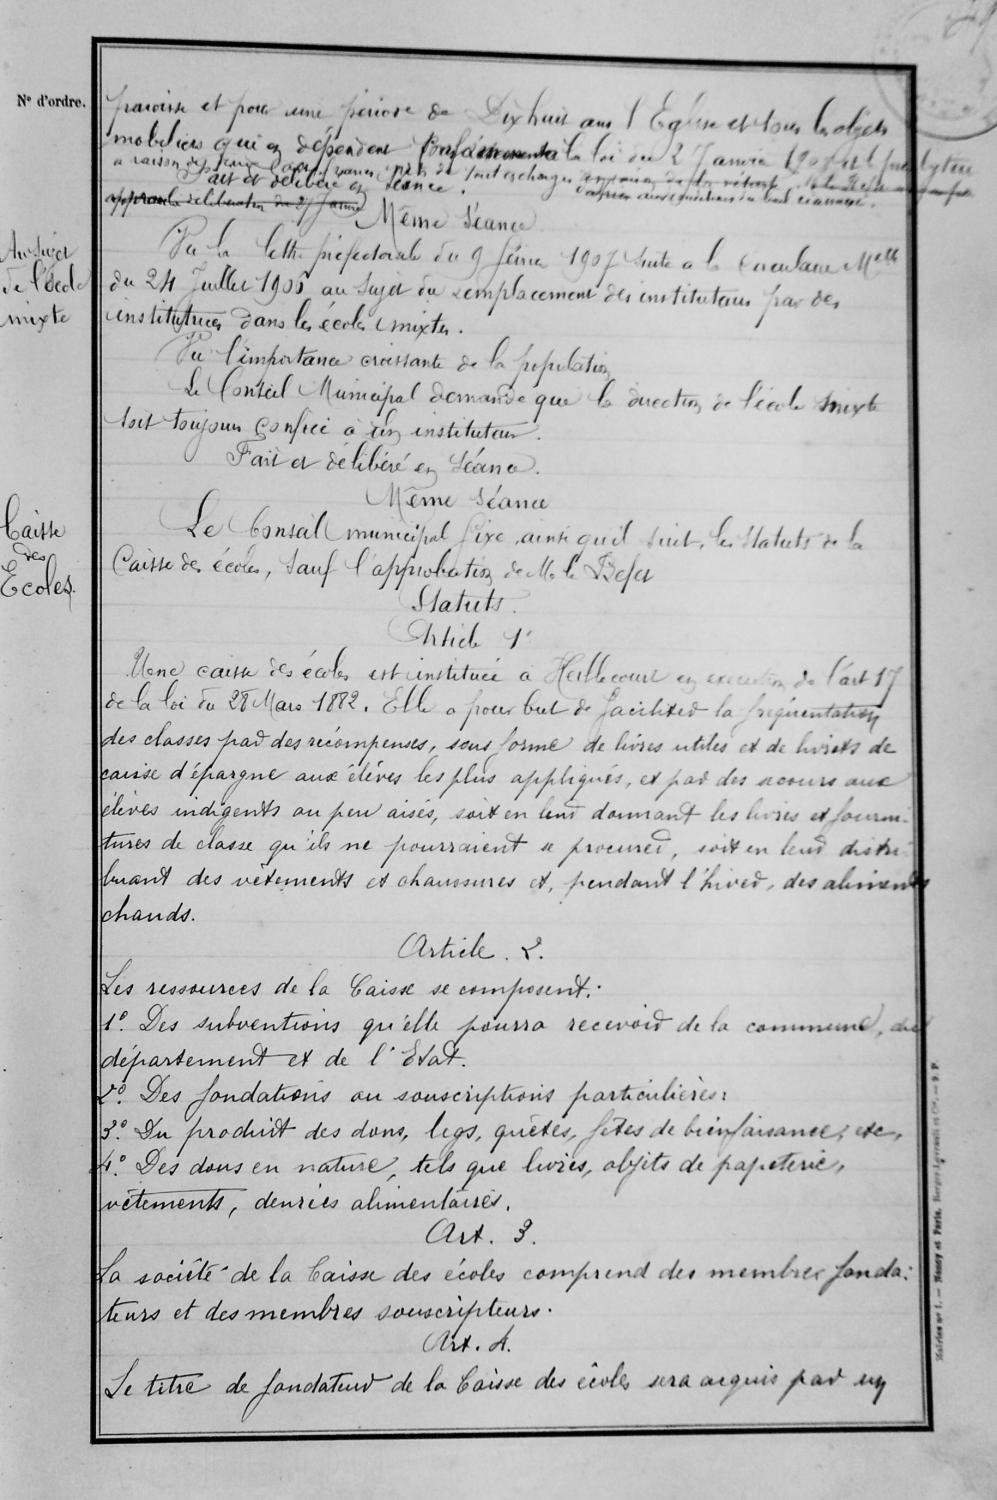 N° d'ordre.
paroisse et pour une période de Dix huit ans l'Eglise et tous les objets
mobiliers qui en dépendent conformément à la loi du 2 Janvier 1907 et le presbytère
à raison de
Fait et délibéré en séance.
Même Séance
Au sujet
de l'école
mixte
Vu la lettre préfectorale du 9 février 1907 suite à la circulaire Mlle
du 24 Juillet 1906 au sujet du remplacement des instituteurs par des
institutrices dans les écoles mixtes.
Vu l'importance croissante de la population
Le Conseil Municipal demande que la direction de l'école mixte
soit toujours confiée à un instituteur.
Fait et délibéré en séance.
Même séance
Caisse
des
Ecoles.
Le Conseil municipal fixe ainsi qu'il suit, les Statuts de la
Caisse des écoles, sauf l'approbation de M. le Préfet
Statuts.
Article 1er
Une caisse des écoles est instituée à Heillecourt en exécution de l'art 17
de la loi du 28 Mars 1882. Elle a pour but de faciliter la fréquentation
des classes par des récompenses, sous forme de livres utiles et de livrets de
caisse d'épargne aux élèves les plus appliqués, et par des secours aux
élèves indigents ou peu aisés, soit en leur donnant les livres et fourni-
tures de classe qu'ils ne pourraient se procurer, soit en leur distri-
buant des vêtements et chaussures et, pendant l'hiver, des aliments
chauds.
Article. 2.
Les ressources de la Caisse se composent:
1° Des subventions qu'elle pourra recevoir de la commune, du
département et de l'Etat.
2° Des fondations ou souscriptions particulières;
3° Du produit des dons, legs, quêtes, fêtes de bienfaisance, etc,
4° Des dons en nature, tels que livres, objets de papeterie,
vêtements, denrées alimentaires.
Art. 3.
La société de la Caisse des écoles comprend des membres fonda-
teurs et des membres souscripteurs.
Art. 4.
Le titre de fondateur de la Caisse des écoles sera acquis par un
Mairies n° 1. — Nancy et Paris. Berger-Levrault et Cie. —